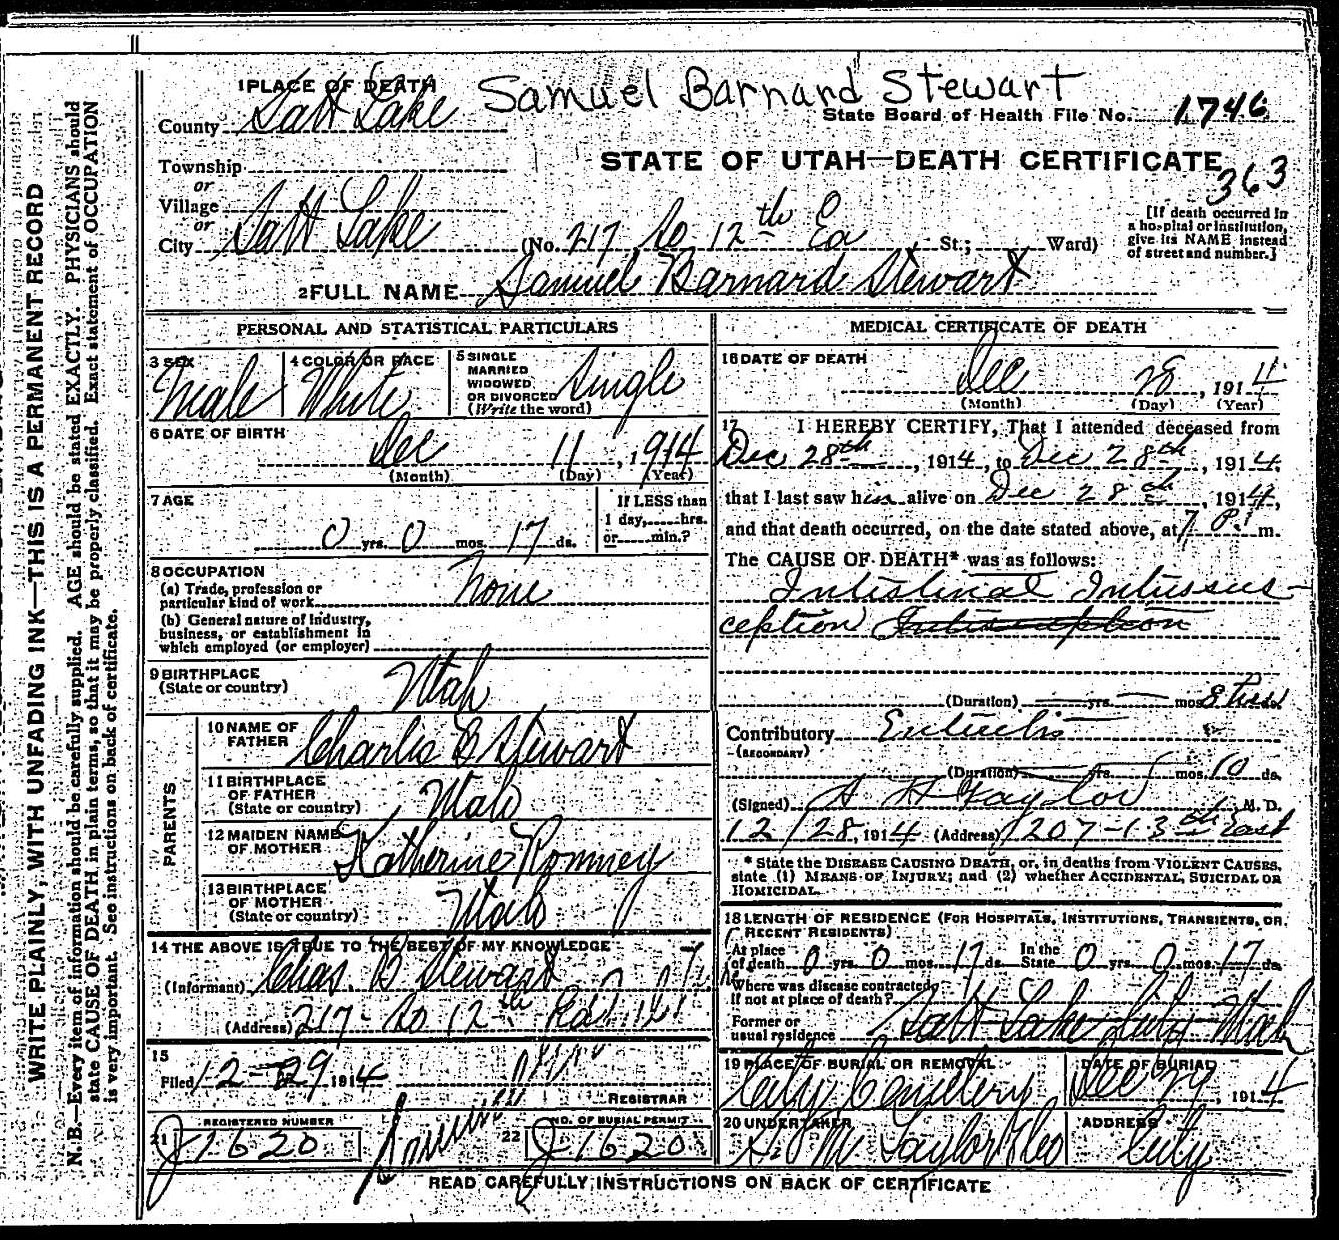 WRITE PLAINLY, WITH UNFADING INK—THIS IS A PERMANENT RECORD
N. B.—Every item of information should be carefully supplied. AGE should be stated EXACTLY. PHYSICIANS should
state CAUSE OF DEATH in plain terms, so that it may be properly classified. Exact statement of OCCUPATION
is very important. See instructions on back of certificate.
1 PLACE OF DEATH Samuel Barnard Stewart
County Salt Lake
State Board of Health File No. 1746
Township
STATE OF UTAH—DEATH CERTIFICATE
363
or
Village
or
City Salt Lake (No. 217 So 12th Ea St.; Ward)
[If death occurred in
a hospital or institution,
give its NAME instead
of street and number.]
2 FULL NAME Samuel Barnard Stewart
PERSONAL AND STATISTICAL PARTICULARS
3 SEX Male
4 COLOR OR RACE White
5 SINGLE
MARRIED
WIDOWED
OR DIVORCED
(Write the word) Single
6 DATE OF BIRTH
Dec 11, 1914
(Month) (Day) (Year)
7 AGE
0 yrs. 0 mos. 17 ds.
If LESS than
1 day, hrs.
or min.?
8 OCCUPATION
(a) Trade, profession or
particular kind of work None
(b) General nature of Industry,
business, or establishment in
which employed (or employer)
9 BIRTHPLACE
(State or country) Utah
PARENTS
10 NAME OF
FATHER Charles B Stewart
11 BIRTHPLACE
OF FATHER
(State or country) Utah
12 MAIDEN NAME
OF MOTHER Katherine Romney
13 BIRTHPLACE
OF MOTHER
(State or country) Utah
14 THE ABOVE IS TRUE TO THE BEST OF MY KNOWLEDGE
(Informant) Chas. B Stewart
(Address) 217 - So 12th East
15
Filed 12-29 1914
REGISTRAR
REGISTERED NUMBER
21 J1620
NO. OF BURIAL PERMIT
22 J1620
MEDICAL CERTIFICATE OF DEATH
16 DATE OF DEATH
Dec 28, 1914
(Month) (Day) (Year)
17 I HEREBY CERTIFY, That I attended deceased from
Dec 28th, 1914, to Dec 28th, 1914,
that I last saw him alive on Dec 28th, 1914,
and that death occurred, on the date stated above, at 7 P. m.
The CAUSE OF DEATH* was as follows:
Intestinal Intussus-
ception
(Duration) yrs. mos. 8 hrs.
Contributory
(SECONDARY)
(Duration) yrs. mos. 10 ds.
(Signed) A H Taylor, M. D.
12/28, 1914 (Address) 1207-13th East
* State the DISEASE CAUSING DEATH, or, in deaths from VIOLENT CAUSES,
state (1) MEANS OF INJURY; and (2) whether ACCIDENTAL, SUICIDAL OR
HOMICIDAL.
18 LENGTH OF RESIDENCE (FOR HOSPITALS, INSTITUTIONS, TRANSIENTS, OR
RECENT RESIDENTS)
At place
of death 0 yrs. 0 mos. 17 ds.
In the
State 0 yrs. 0 mos. 17 ds.
Where was disease contracted,
if not at place of death?
Former or
usual residence Salt Lake City Utah
19 PLACE OF BURIAL OR REMOVAL
City Cemetery
DATE OF BURIAL
Dec 29, 1914
20 UNDERTAKER
S. M. Taylor & Co
ADDRESS
City
READ CAREFULLY INSTRUCTIONS ON BACK OF CERTIFICATE